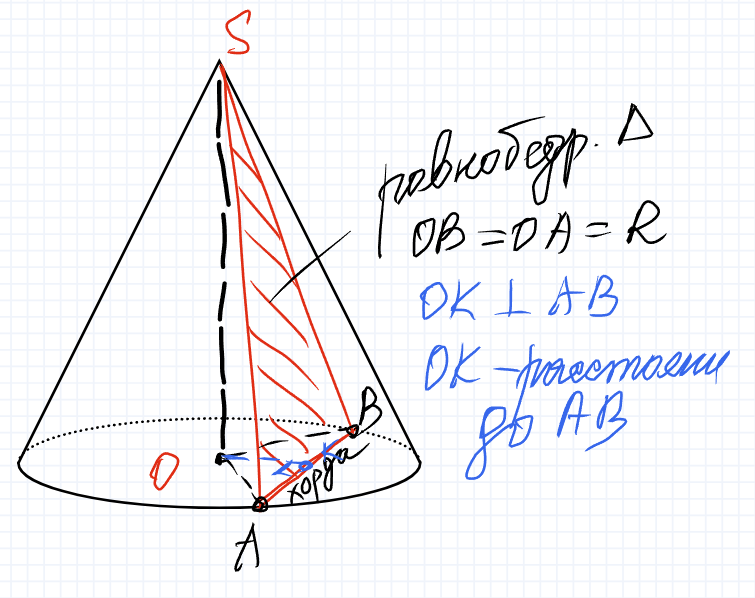 S
равнобедр. Δ
OB = OA = R
OK ⊥ AB
OK - расстояние
до AB
B
O
K
хорда
A